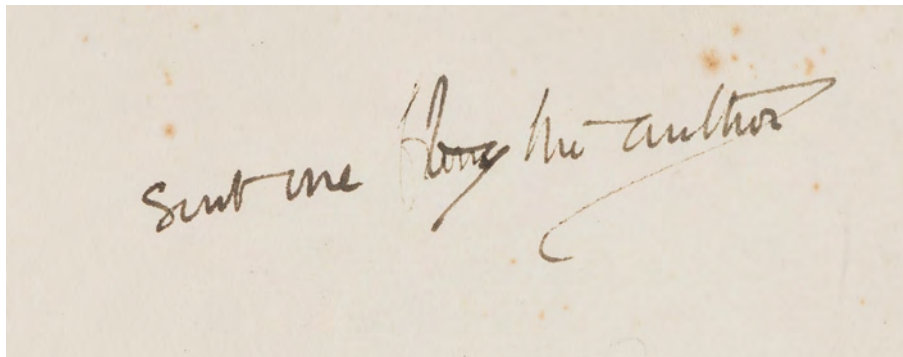 Sent me the author